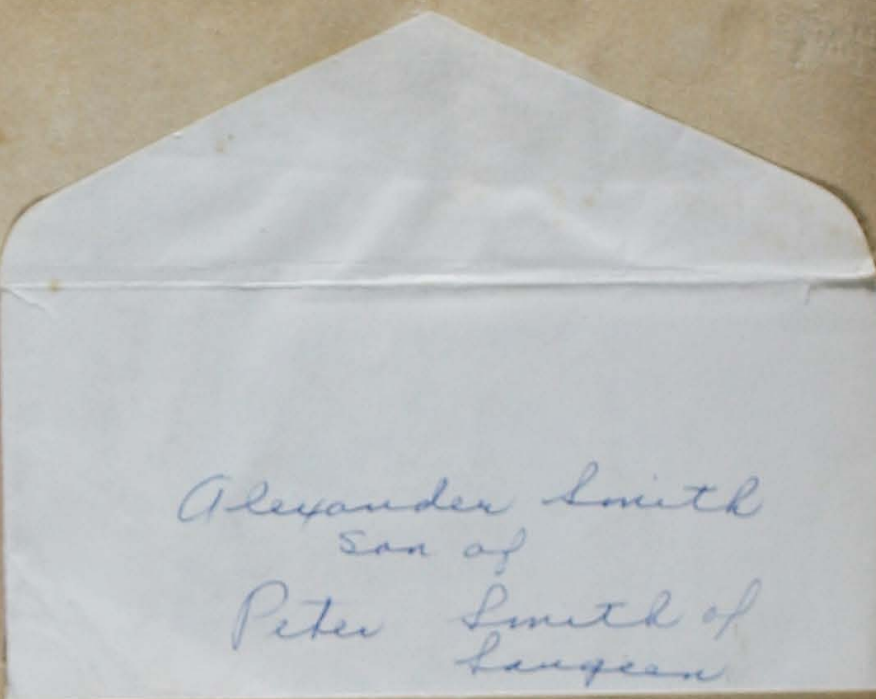 Alexander Smith
Son of
Peter Smith of
Saugeen